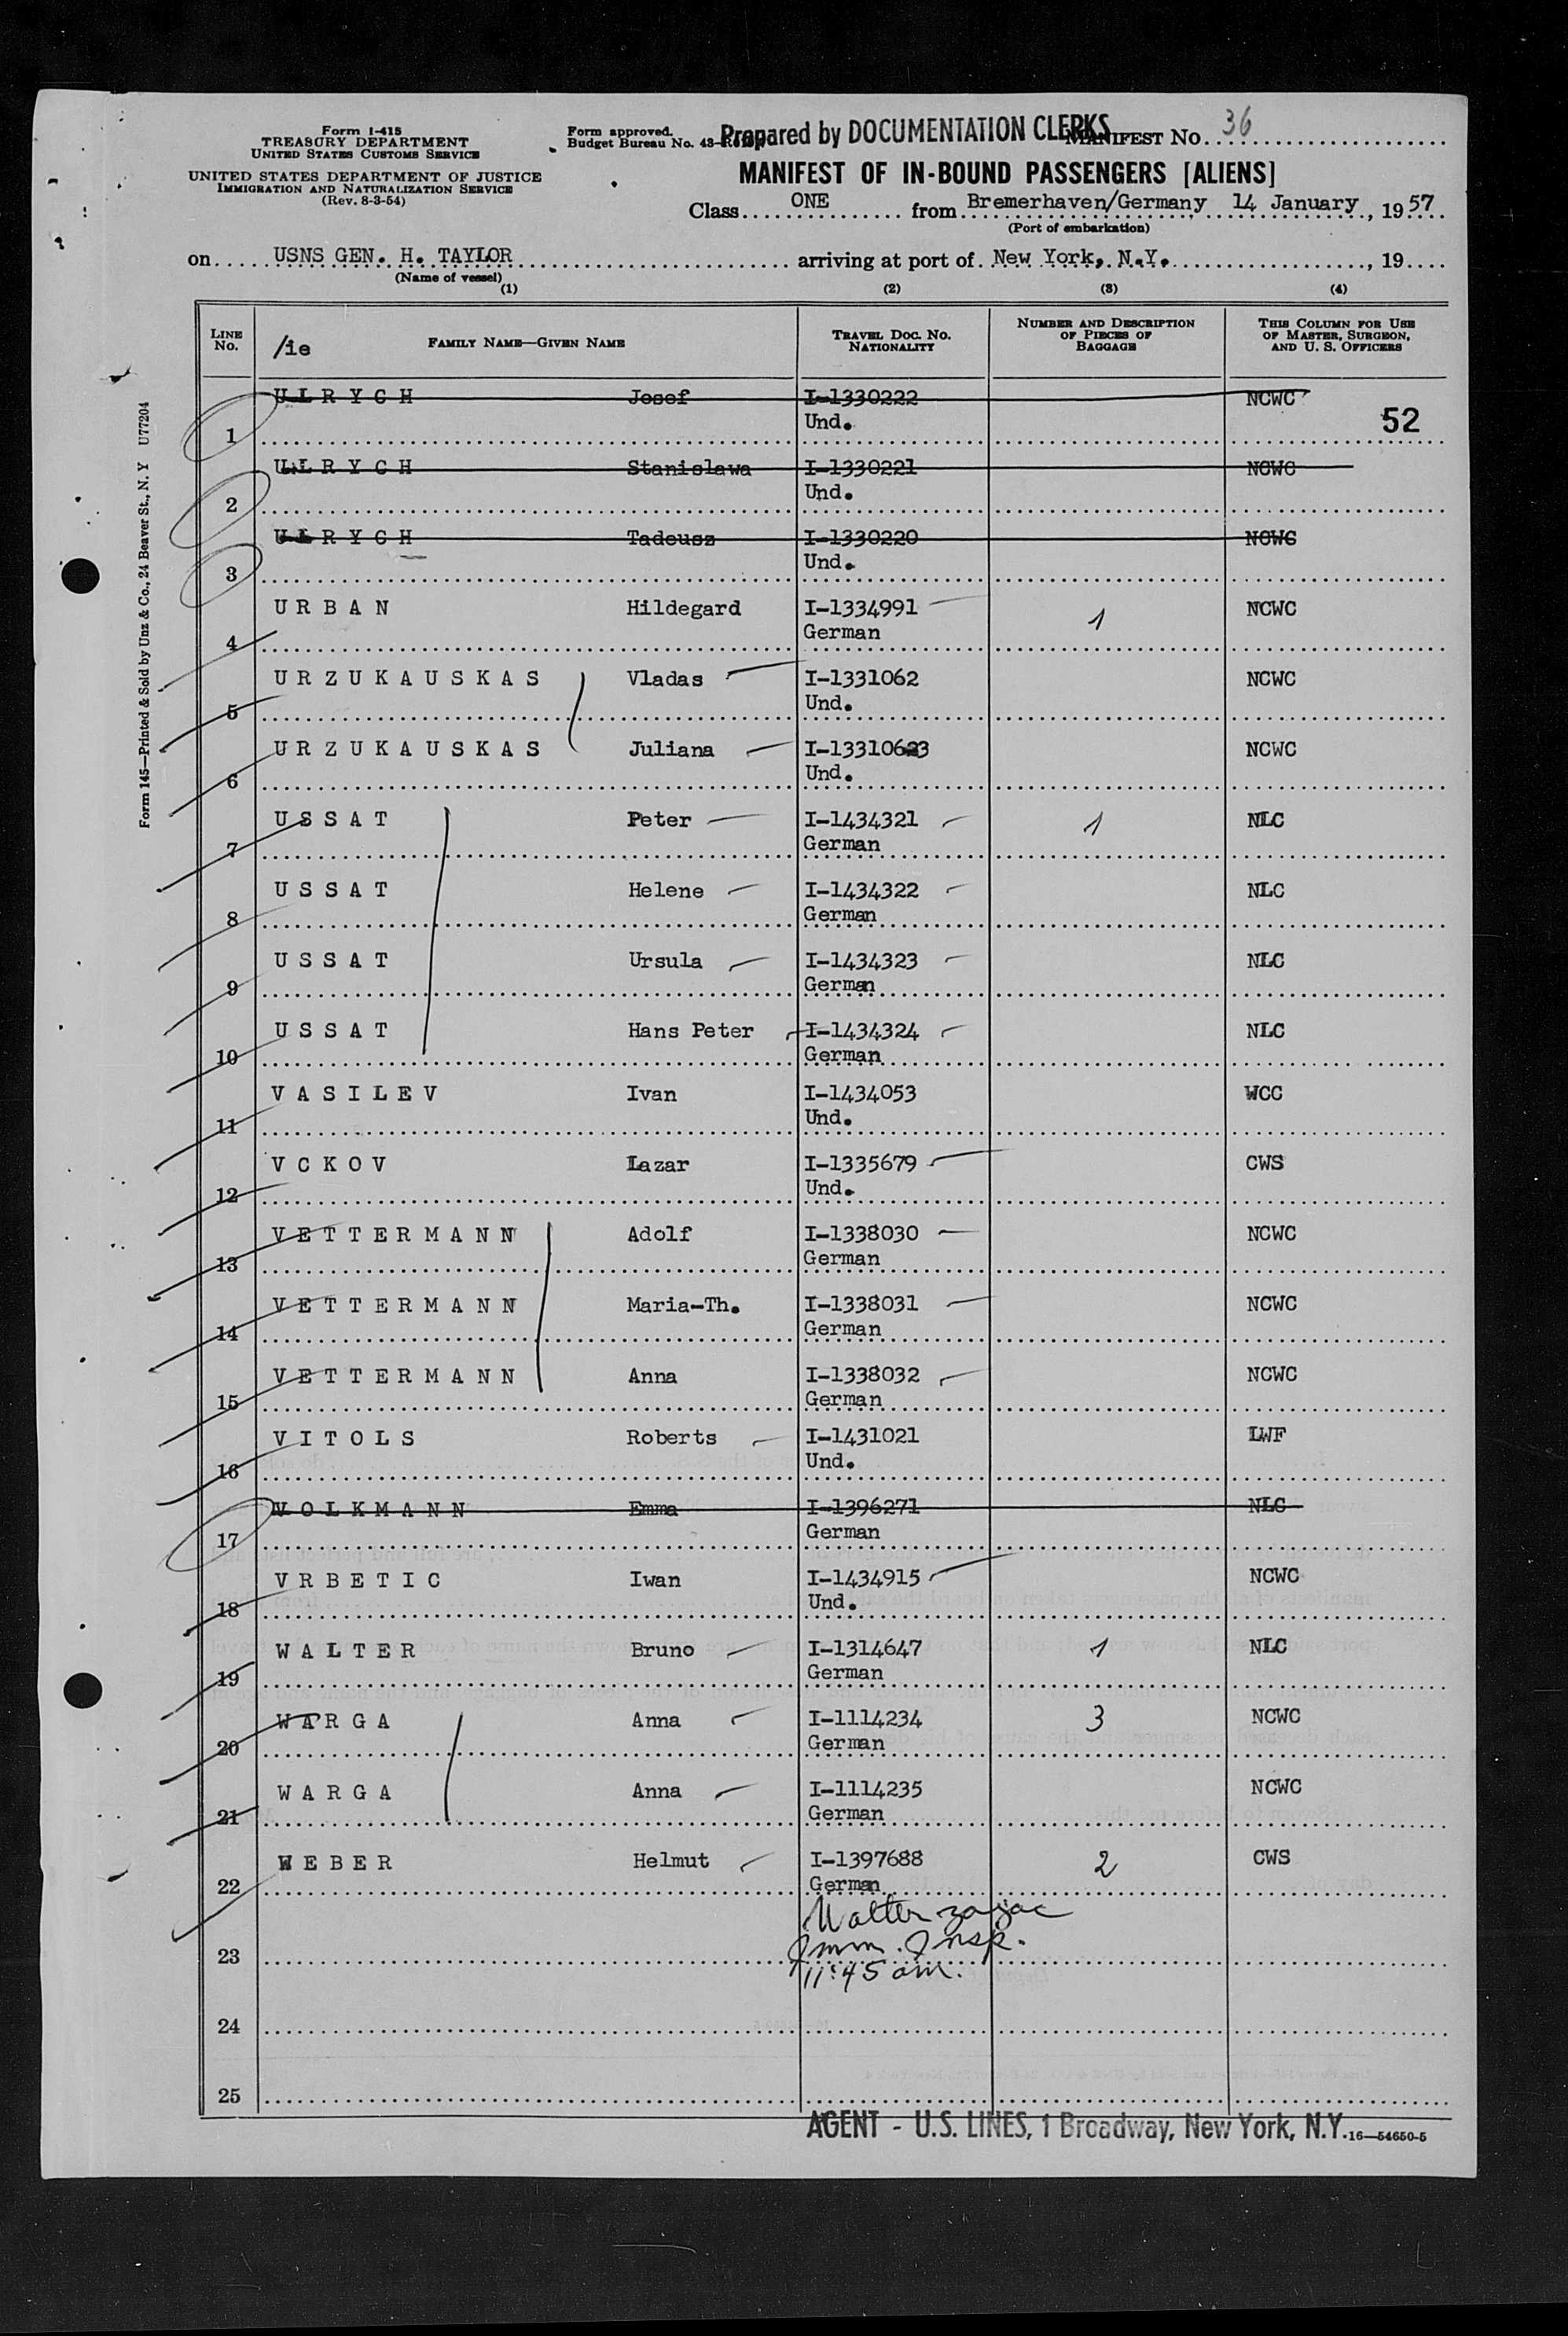 Form I-415
TREASURY DEPARTMENT
UNITED STATES CUSTOMS SERVICE
UNITED STATES DEPARTMENT OF JUSTICE
IMMIGRATION AND NATURALIZATION SERVICE
(Rev. 8-3-54)
Form approved.
Budget Bureau No. 43-
Prepared by DOCUMENTATION CLERKS
MANIFEST No. 36
MANIFEST OF IN-BOUND PASSENGERS [ALIENS]
Class ONE from Bremerhaven/Germany 14 January, 1957
(Port of embarkation)
on USNS GEN. H. TAYLOR arriving at port of New York, N.Y., 19
(Name of vessel)
(1) (2) (3) (4)
LINE No. /ie FAMILY NAME—GIVEN NAME TRAVEL DOC. NO. NATIONALITY NUMBER AND DESCRIPTION OF PIECES OF BAGGAGE THIS COLUMN FOR USE OF MASTER, SURGEON, AND U. S. OFFICERS
1 ULRYCH Josef I-1330222 Und. NCWC 52
2 ULRYCH Stanislawa I-1330221 Und. NCWC
3 ULRYCH Tadeusz I-1330220 Und. NCWC
4 URBAN Hildegard I-1334991 German 1 NCWC
5 URZUKAUSKAS Vladas I-1331062 Und. NCWC
6 URZUKAUSKAS Juliana I-1331063 Und. NCWC
7 USSAT Peter I-1434321 German 1 NLC
8 USSAT Helene I-1434322 German NLC
9 USSAT Ursula I-1434323 German NLC
10 USSAT Hans Peter I-1434324 German NLC
11 VASILEV Ivan I-1434053 Und. WCC
12 VCKOV Lazar I-1335679 Und. CWS
13 VETTERMANN Adolf I-1338030 German NCWC
14 VETTERMANN Maria-Th. I-1338031 German NCWC
15 VETTERMANN Anna I-1338032 German NCWC
16 VITOLS Roberts I-1431021 Und. LWF
17 VOLKMANN Emma I-1396271 German NLC
18 VRBETIC Iwan I-1434915 Und. NCWC
19 WALTER Bruno I-1314647 German 1 NLC
20 WARGA Anna I-1114234 German 3 NCWC
21 WARGA Anna I-1114235 German NCWC
22 WEBER Helmut I-1397688 German 2 CWS
Walter Zajac
23 Imm. Insp.
11:45 am.
24
25
AGENT - U.S. LINES, 1 Broadway, New York, N.Y. 16—54650-5
Form 145—Printed & Sold by Unz & Co., 24 Beaver St., N. Y U77204